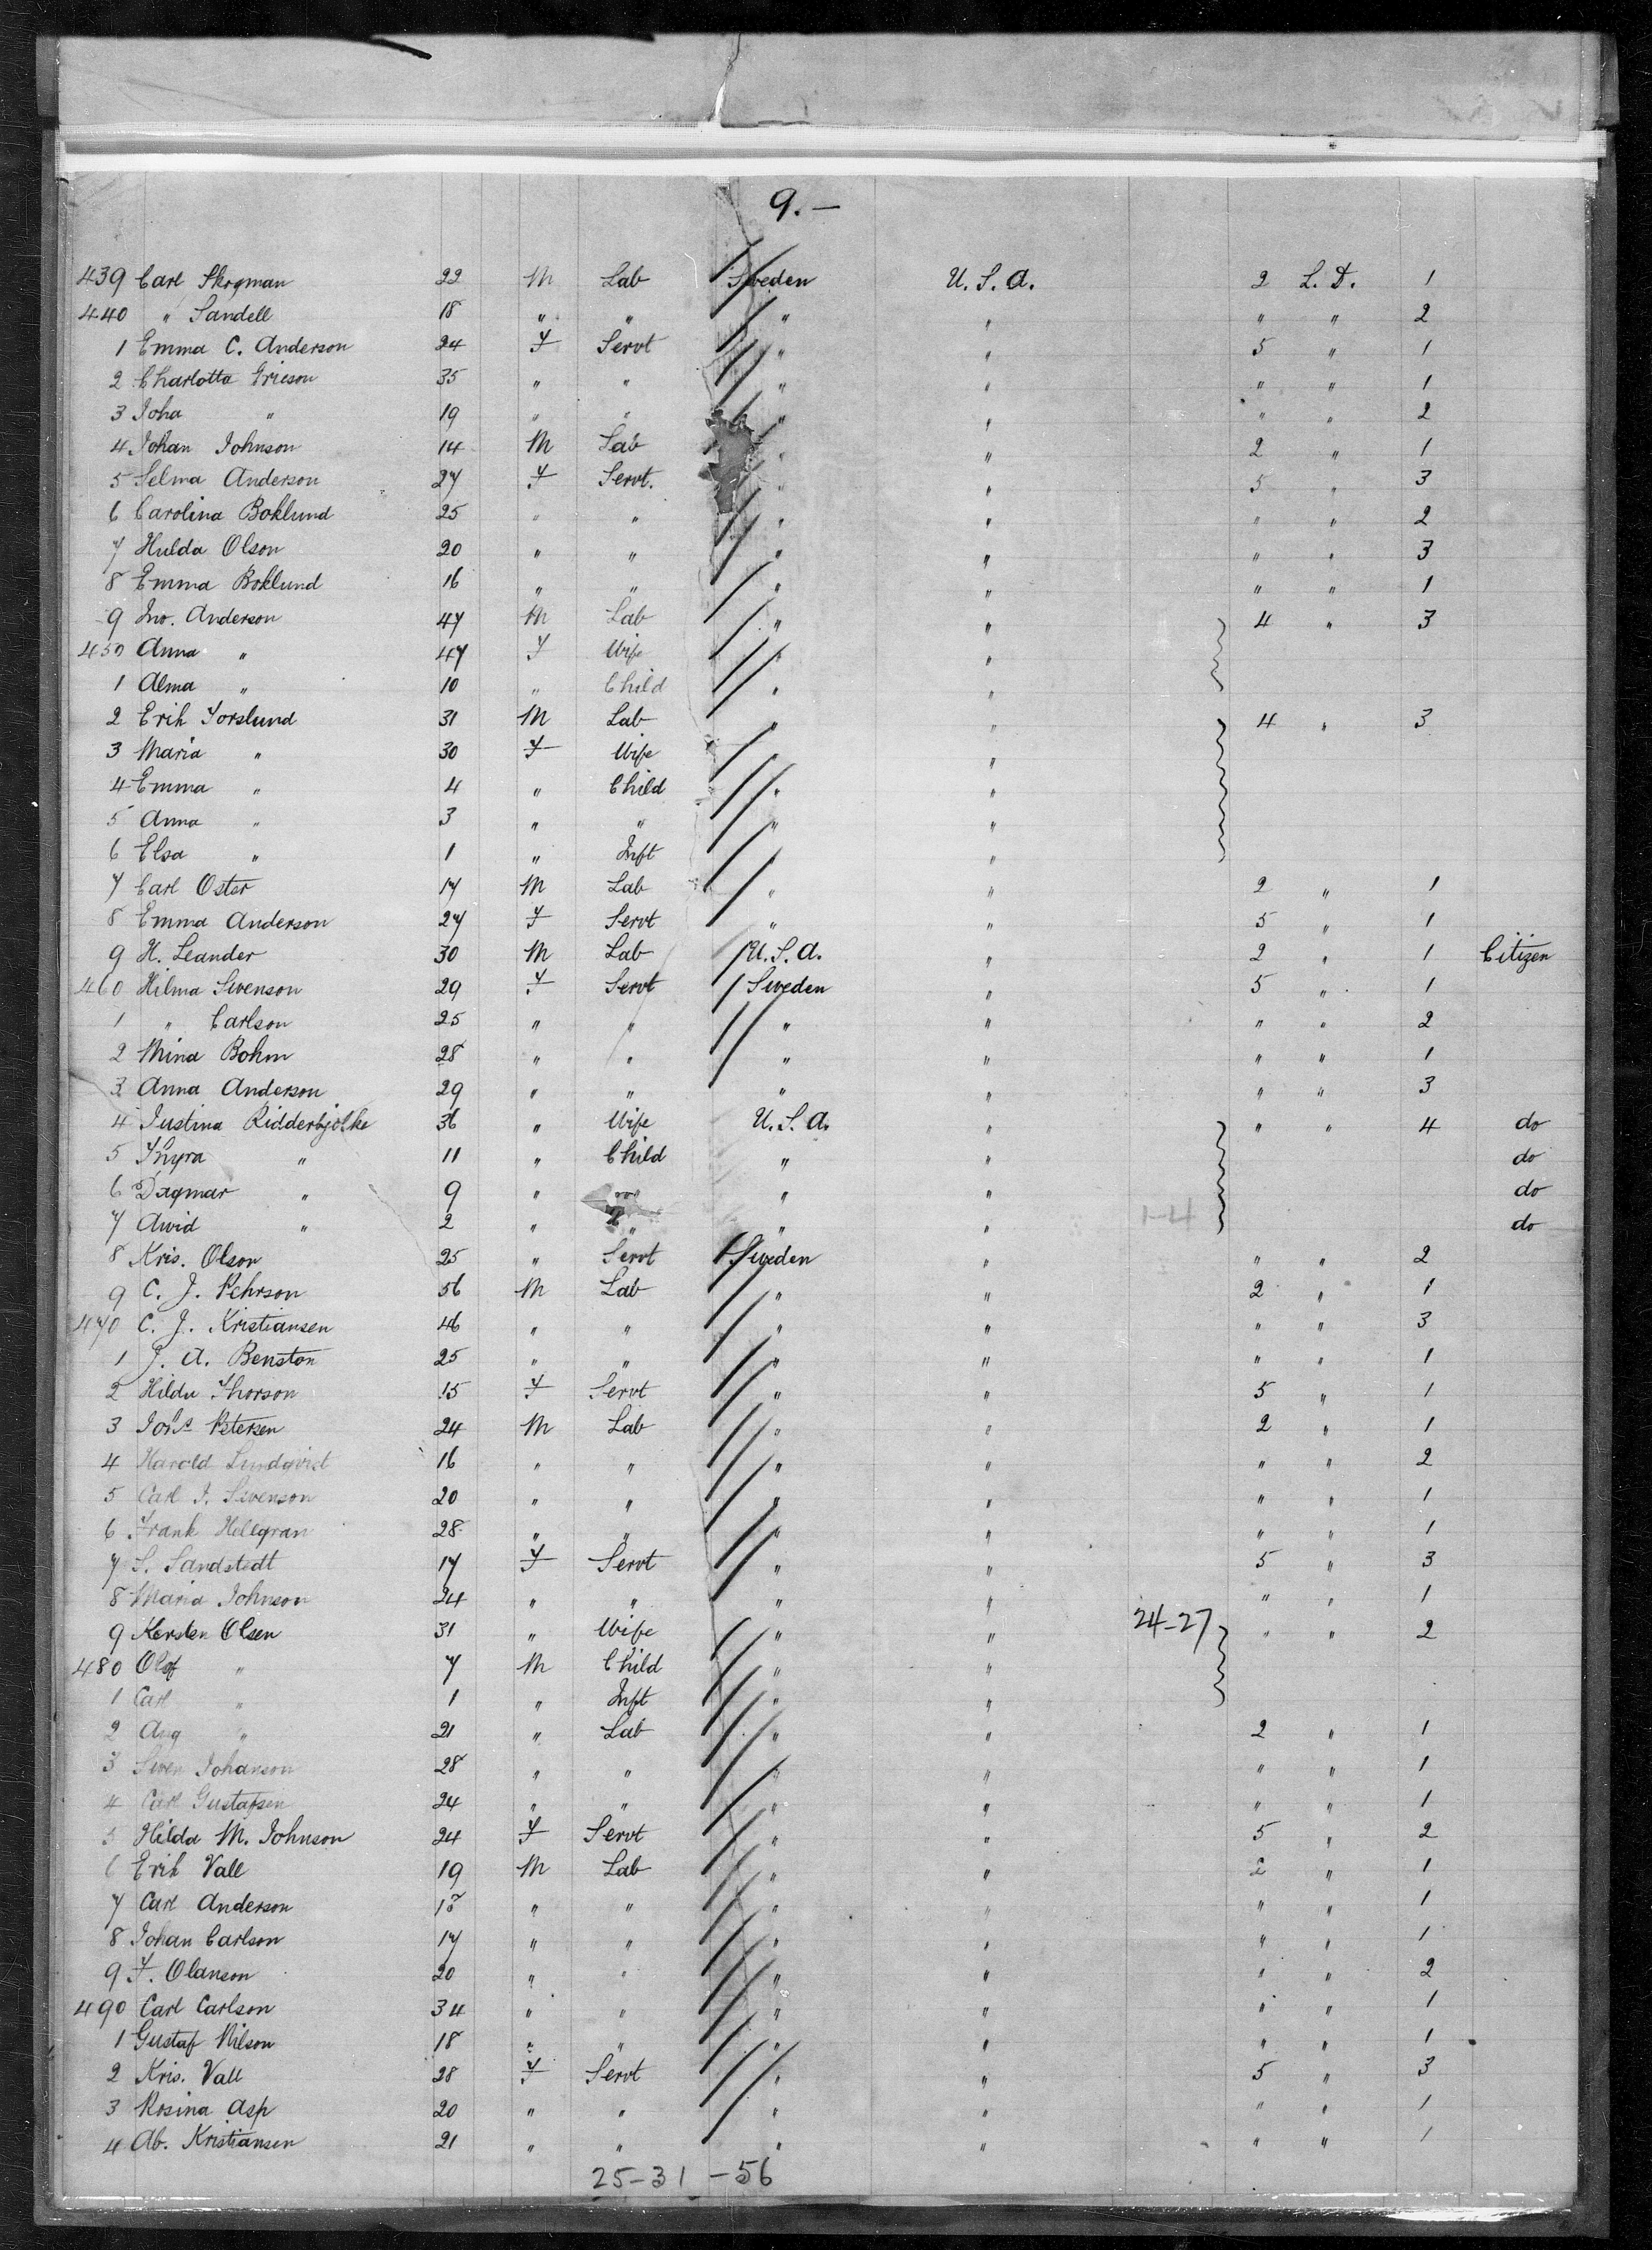 9.—
439 Carl Skogman 22 M Lab Sweden U.S.A. 2 L.D. 1
440 " Sandell 18 " " " " " " 2
1 Emma C. Anderson 24 F Servt " " 5 " 1
2 Charlotta Ericson 35 " " " " " " 1
3 Joha " 19 " " " " " " 2
4 Johan Johnson 14 M Lab " " 2 " 1
5 Selma Anderson 27 F Servt. " " 5 " 3
6 Carolina Boklund 25 " " " " " " 2
7 Hulda Olson 20 " " " " " " 3
8 Emma Boklund 16 " " " " " " 1
9 Jno. Anderson 47 M Lab " " 4 " 3
450 Anna " 47 F Wife " "
1 Alma " 10 " Child " "
2 Erik Forslund 31 M Lab " " 4 " 3
3 Maria " 30 F Wife " "
4 Emma " 4 " Child " "
5 Anna " 3 " " " "
6 Elsa " 1 " Inft " "
7 Carl Oster 17 M Lab " " 2 " 1
8 Emma Anderson 27 F Servt " " 5 " 1
9 H. Leander 30 M Lab U.S.A. " 2 " 1 Citizen
460 Hilma Swenson 29 F Servt Sweden " 5 " 1
1 " Carlson 25 " " " " " " 2
2 Mina Bohm 28 " " " " " " 1
3 Anna Anderson 29 " " " " " " 3
4 Justina Ridderbjolke 36 " Wife U.S.A. " " " 4 do
5 Thyra " 11 " Child " " do
6 Dagmar " 9 " " " " do
7 Awid " 2 " " " " 1-4 do
8 Kris. Olson 25 " Servt Sweden " " " 2
9 C. J. Pehrson 56 M Lab " " 2 " 1
470 C. J. Kristiansen 46 " " " " " " 3
1 J. A. Benston 25 " " " " " " 1
2 Hilda Thorson 15 F Servt " " 5 " 1
3 Johs Petersen 24 M Lab " " 2 " 1
4 Harold Lundqvist 16 " " " " " " 2
5 Carl J. Swenson 20 " " " " " " 1
6 Frank Hellgran 28 " " " " " " 1
7 S. Sandstedt 17 F Servt " " 5 " 3
8 Maria Johnson 24 " " " " " " 1
9 Kersten Olsen 31 " Wife " " 24-27 " " 2
480 Olof " 7 M Child " "
1 Carl " 1 " Inft " "
2 Aug " 21 " Lab " " 2 " 1
3 Swen Johanson 28 " " " " " " 1
4 Carl Gustafsen 24 " " " " " " 1
5 Hilda M. Johnson 24 F Servt " " 5 " 2
6 Erik Vall 19 M Lab " " 2 " 1
7 Carl Anderson 18 " " " " " " 1
8 Johan Carlson 17 " " " " " " 1
9 F. Olanson 20 " " " " " " 2
490 Carl Carlson 34 " " " " " " 1
1 Gustaf Nilson 18 " " " " " " 1
2 Kris. Vall 28 F Servt " " 5 " 3
3 Rosina Asp 20 " " " " " " 1
4 Ab. Kristiansen 21 " " " " " " 1
25-31-56